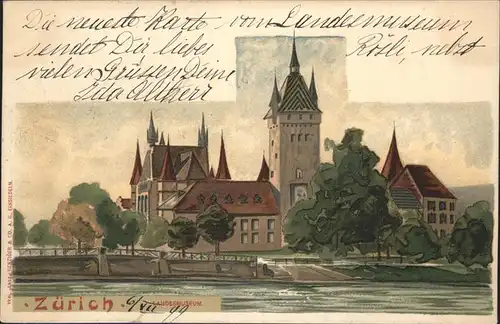 Die neueste Karte vom Landesmuseum
sendet Dir liebes Rösli, nebst
vielen Grüssen Deine
Ida Altherr
Zürich
LANDESMUSEUM.
6/XII 99